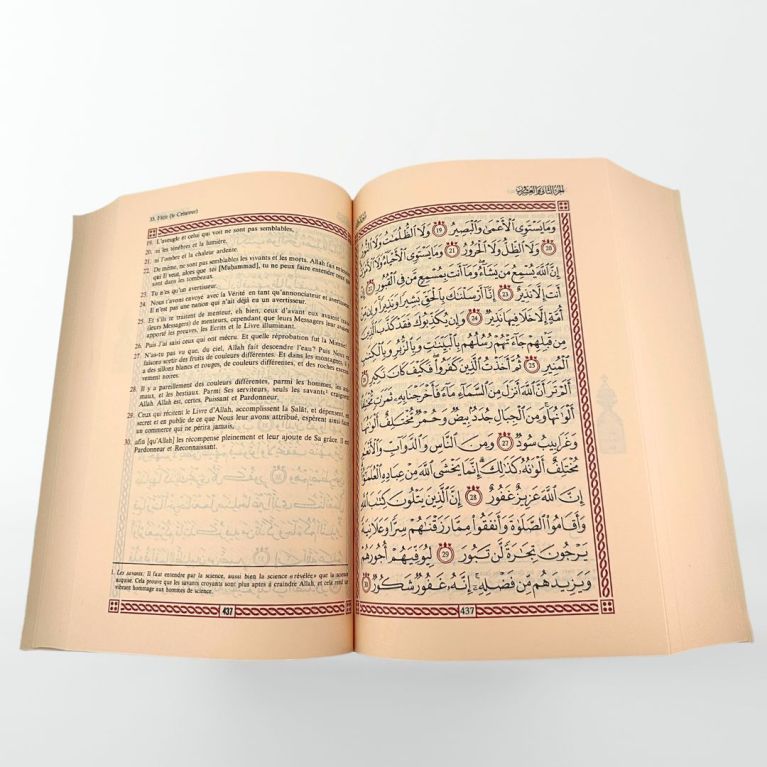 35. Fâtir (le Créateur)
19. L'aveugle et celui qui voit ne sont pas semblables,
20. ni les ténèbres et la lumière,
21. ni l'ombre et la chaleur ardente.
22. De même, ne sont pas semblables les vivants et les morts. Allah fait entendre
qui Il veut, alors que toi [Muḥammad], tu ne peux faire entendre ceux qui
sont dans les tombeaux.
23. Tu n'es qu'un avertisseur.
24. Nous t'avons envoyé avec la Vérité en tant qu'annonciateur et avertisseur.
Il n'est pas une nation qui n'ait déjà eu un avertisseur.
25. Et s'ils te traitent de menteur, eh bien, ceux d'avant eux avaient
(leurs Messagers) de menteurs, cependant que leurs Messagers leur avaient
apporté les preuves, les Ecrits et le Livre illuminant.
26. Puis J'ai saisi ceux qui ont mécru. Et quelle réprobation fut la Mienne!
27. N'as-tu pas vu que, du ciel, Allah fait descendre l'eau? Puis Nous en
faisons sortir des fruits de couleurs différentes. Et dans les montagnes, il y
a des sillons blancs et rouges, de couleurs différentes, et des roches
vement noires.
28. Il y a pareillement des couleurs différentes, parmi les hommes, les ani-
maux, et les bestiaux. Parmi Ses serviteurs, seuls les savants¹ craignent
Allah. Allah est, certes, Puissant et Pardonneur.
29. Ceux qui récitent le Livre d'Allah, accomplissent la Salât, et dépensent, en
secret et en public de ce que Nous leur avons attribué, espèrent ainsi faire
un commerce qui ne périra jamais,
30. afin [qu'Allah] les récompense pleinement et leur ajoute de Sa grâce. Il est
Pardonneur et Reconnaissant.
1. Les savants: Il faut entendre par la science, aussi bien la science «révélée» que la science
acquise. Cela prouve que les savants croyants sont plus aptes à craindre Allah, et cela rend un
vibrant hommage aux hommes de science.
437
الجزء الثاني والعشرون
وَمَا يَسْتَوِى ٱلْأَعْمَىٰ وَٱلْبَصِيرُ ١٩ وَلَا ٱلظُّلُمَـٰتُ وَلَا ٱلنُّورُ
٢٠ وَلَا ٱلظِّلُّ وَلَا ٱلْحَرُورُ ٢١ وَمَا يَسْتَوِى ٱلْأَحْيَآءُ وَلَا ٱلْأَمْوَٰتُ
إِنَّ ٱللَّهَ يُسْمِعُ مَن يَشَآءُ وَمَآ أَنتَ بِمُسْمِعٍ مَّن فِى ٱلْقُبُورِ ٢٢ إِنْ
أَنتَ إِلَّا نَذِيرٌ ٢٣ إِنَّآ أَرْسَلْنَـٰكَ بِٱلْحَقِّ بَشِيرًا وَنَذِيرًا وَإِن مِّنْ
أُمَّةٍ إِلَّا خَلَا فِيهَا نَذِيرٌ ٢٤ وَإِن يُكَذِّبُوكَ فَقَدْ كَذَّبَ ٱلَّذِينَ
مِن قَبْلِهِمْ جَآءَتْهُمْ رُسُلُهُم بِٱلْبَيِّنَـٰتِ وَبِٱلزُّبُرِ وَبِٱلْكِتَـٰبِ
ٱلْمُنِيرِ ٢٥ ثُمَّ أَخَذْتُ ٱلَّذِينَ كَفَرُوا۟ فَكَيْفَ كَانَ نَكِيرِ ٢٦
أَلَمْ تَرَ أَنَّ ٱللَّهَ أَنزَلَ مِنَ ٱلسَّمَآءِ مَآءً فَأَخْرَجْنَا بِهِۦ ثَمَرَٰتٍ مُّخْتَلِفًا
أَلْوَٰنُهَا وَمِنَ ٱلْجِبَالِ جُدَدٌۢ بِيضٌ وَحُمْرٌ مُّخْتَلِفٌ أَلْوَٰنُهَا
وَغَرَابِيبُ سُودٌ ٢٧ وَمِنَ ٱلنَّاسِ وَٱلدَّوَآبِّ وَٱلْأَنْعَـٰمِ
مُخْتَلِفٌ أَلْوَٰنُهُۥ كَذَٰلِكَ إِنَّمَا يَخْشَى ٱللَّهَ مِنْ عِبَادِهِ ٱلْعُلَمَـٰٓؤُا۟
إِنَّ ٱللَّهَ عَزِيزٌ غَفُورٌ ٢٨ إِنَّ ٱلَّذِينَ يَتْلُونَ كِتَـٰبَ ٱللَّهِ
وَأَقَامُوا۟ ٱلصَّلَوٰةَ وَأَنفَقُوا۟ مِمَّا رَزَقْنَـٰهُمْ سِرًّا وَعَلَانِيَةً
يَرْجُونَ تِجَـٰرَةً لَّن تَبُورَ ٢٩ لِيُوَفِّيَهُمْ أُجُورَهُمْ
وَيَزِيدَهُم مِّن فَضْلِهِۦٓ إِنَّهُۥ غَفُورٌ شَكُورٌ ٣٠
437